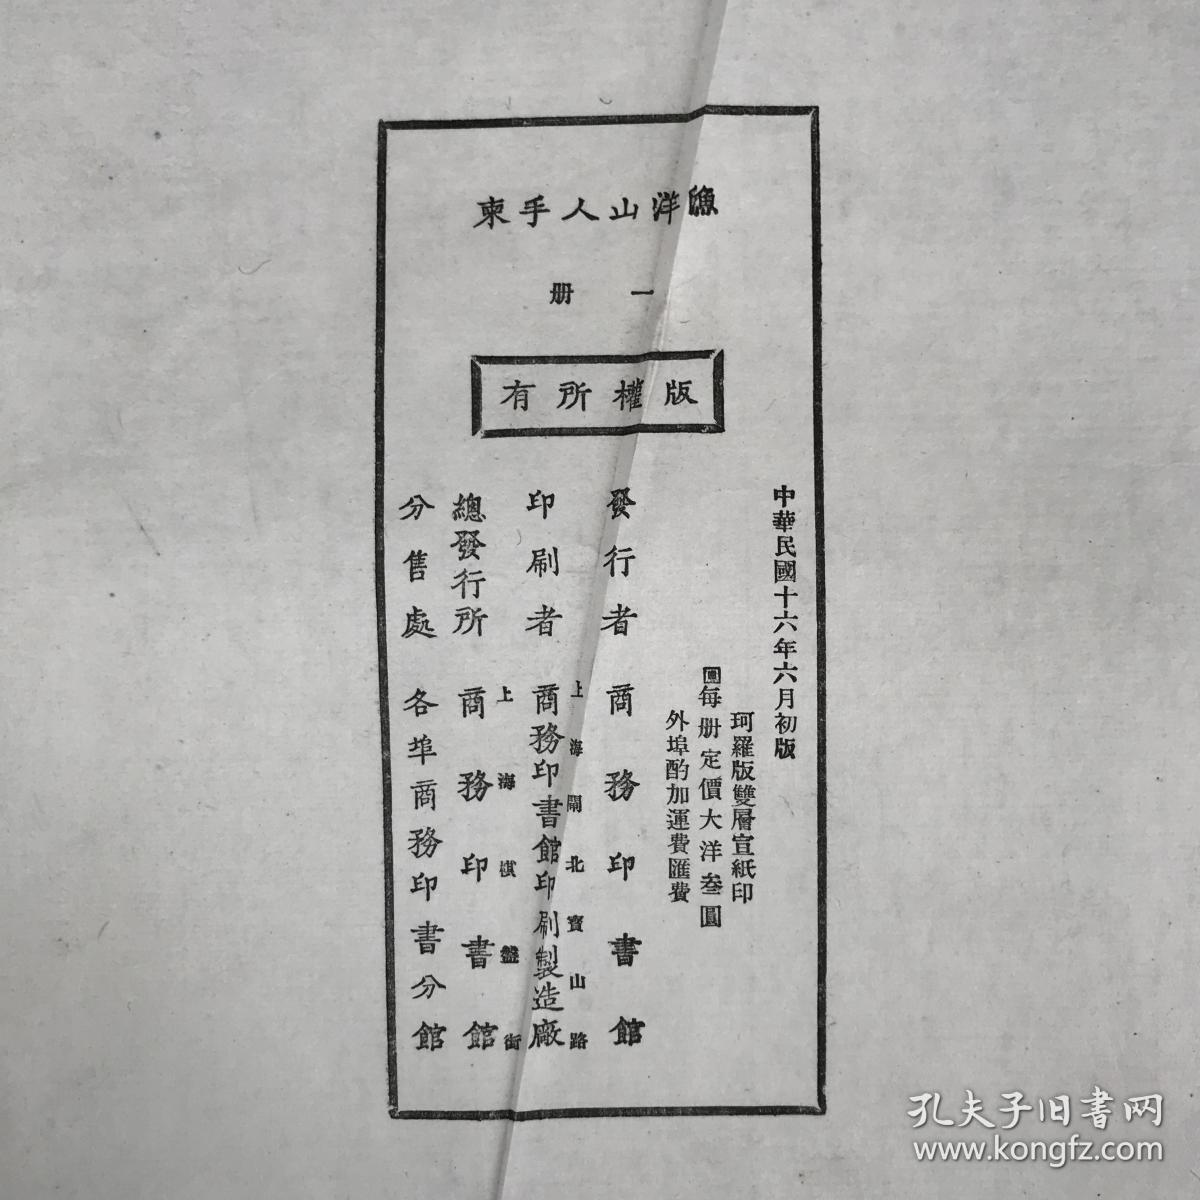 漁洋山人手柬
一册
版權所有
中華民國十六年六月初版
珂羅版雙層宣紙印
每册定價大洋叁圓
外埠酌加運費匯費
發行者 商務印書館
上海閘北寶山路
印刷者 商務印書館印刷製造廠
上海棋盤街
總發行所 商務印書館
分售處 各埠商務印書分館
孔夫子旧书网
www.kongfz.com